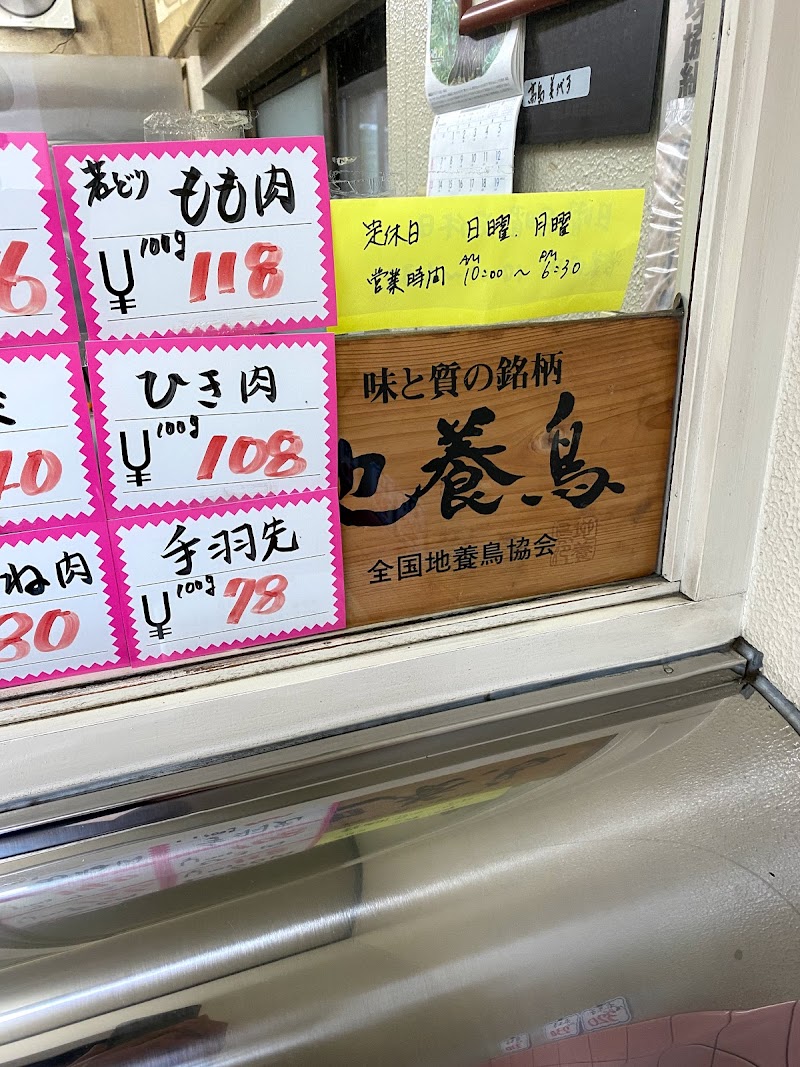 若どり もも肉
100g
¥ 118
定休日 日曜. 月曜
営業時間 AM 10:00 〜 PM 6:30
ひき肉
100g
¥ 108
味と質の銘柄
地養鳥
全国地養鳥協会
手羽先
100g
¥ 78
ね肉
80